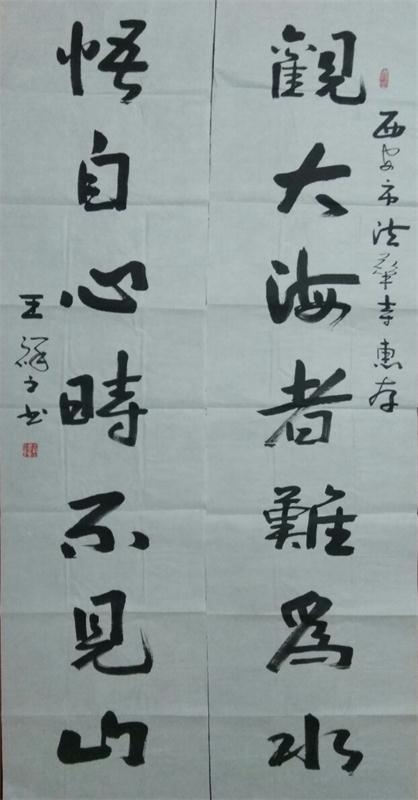 西安市法華寺惠存
觀大海者難爲水
悟自心時不見山
王祥之书